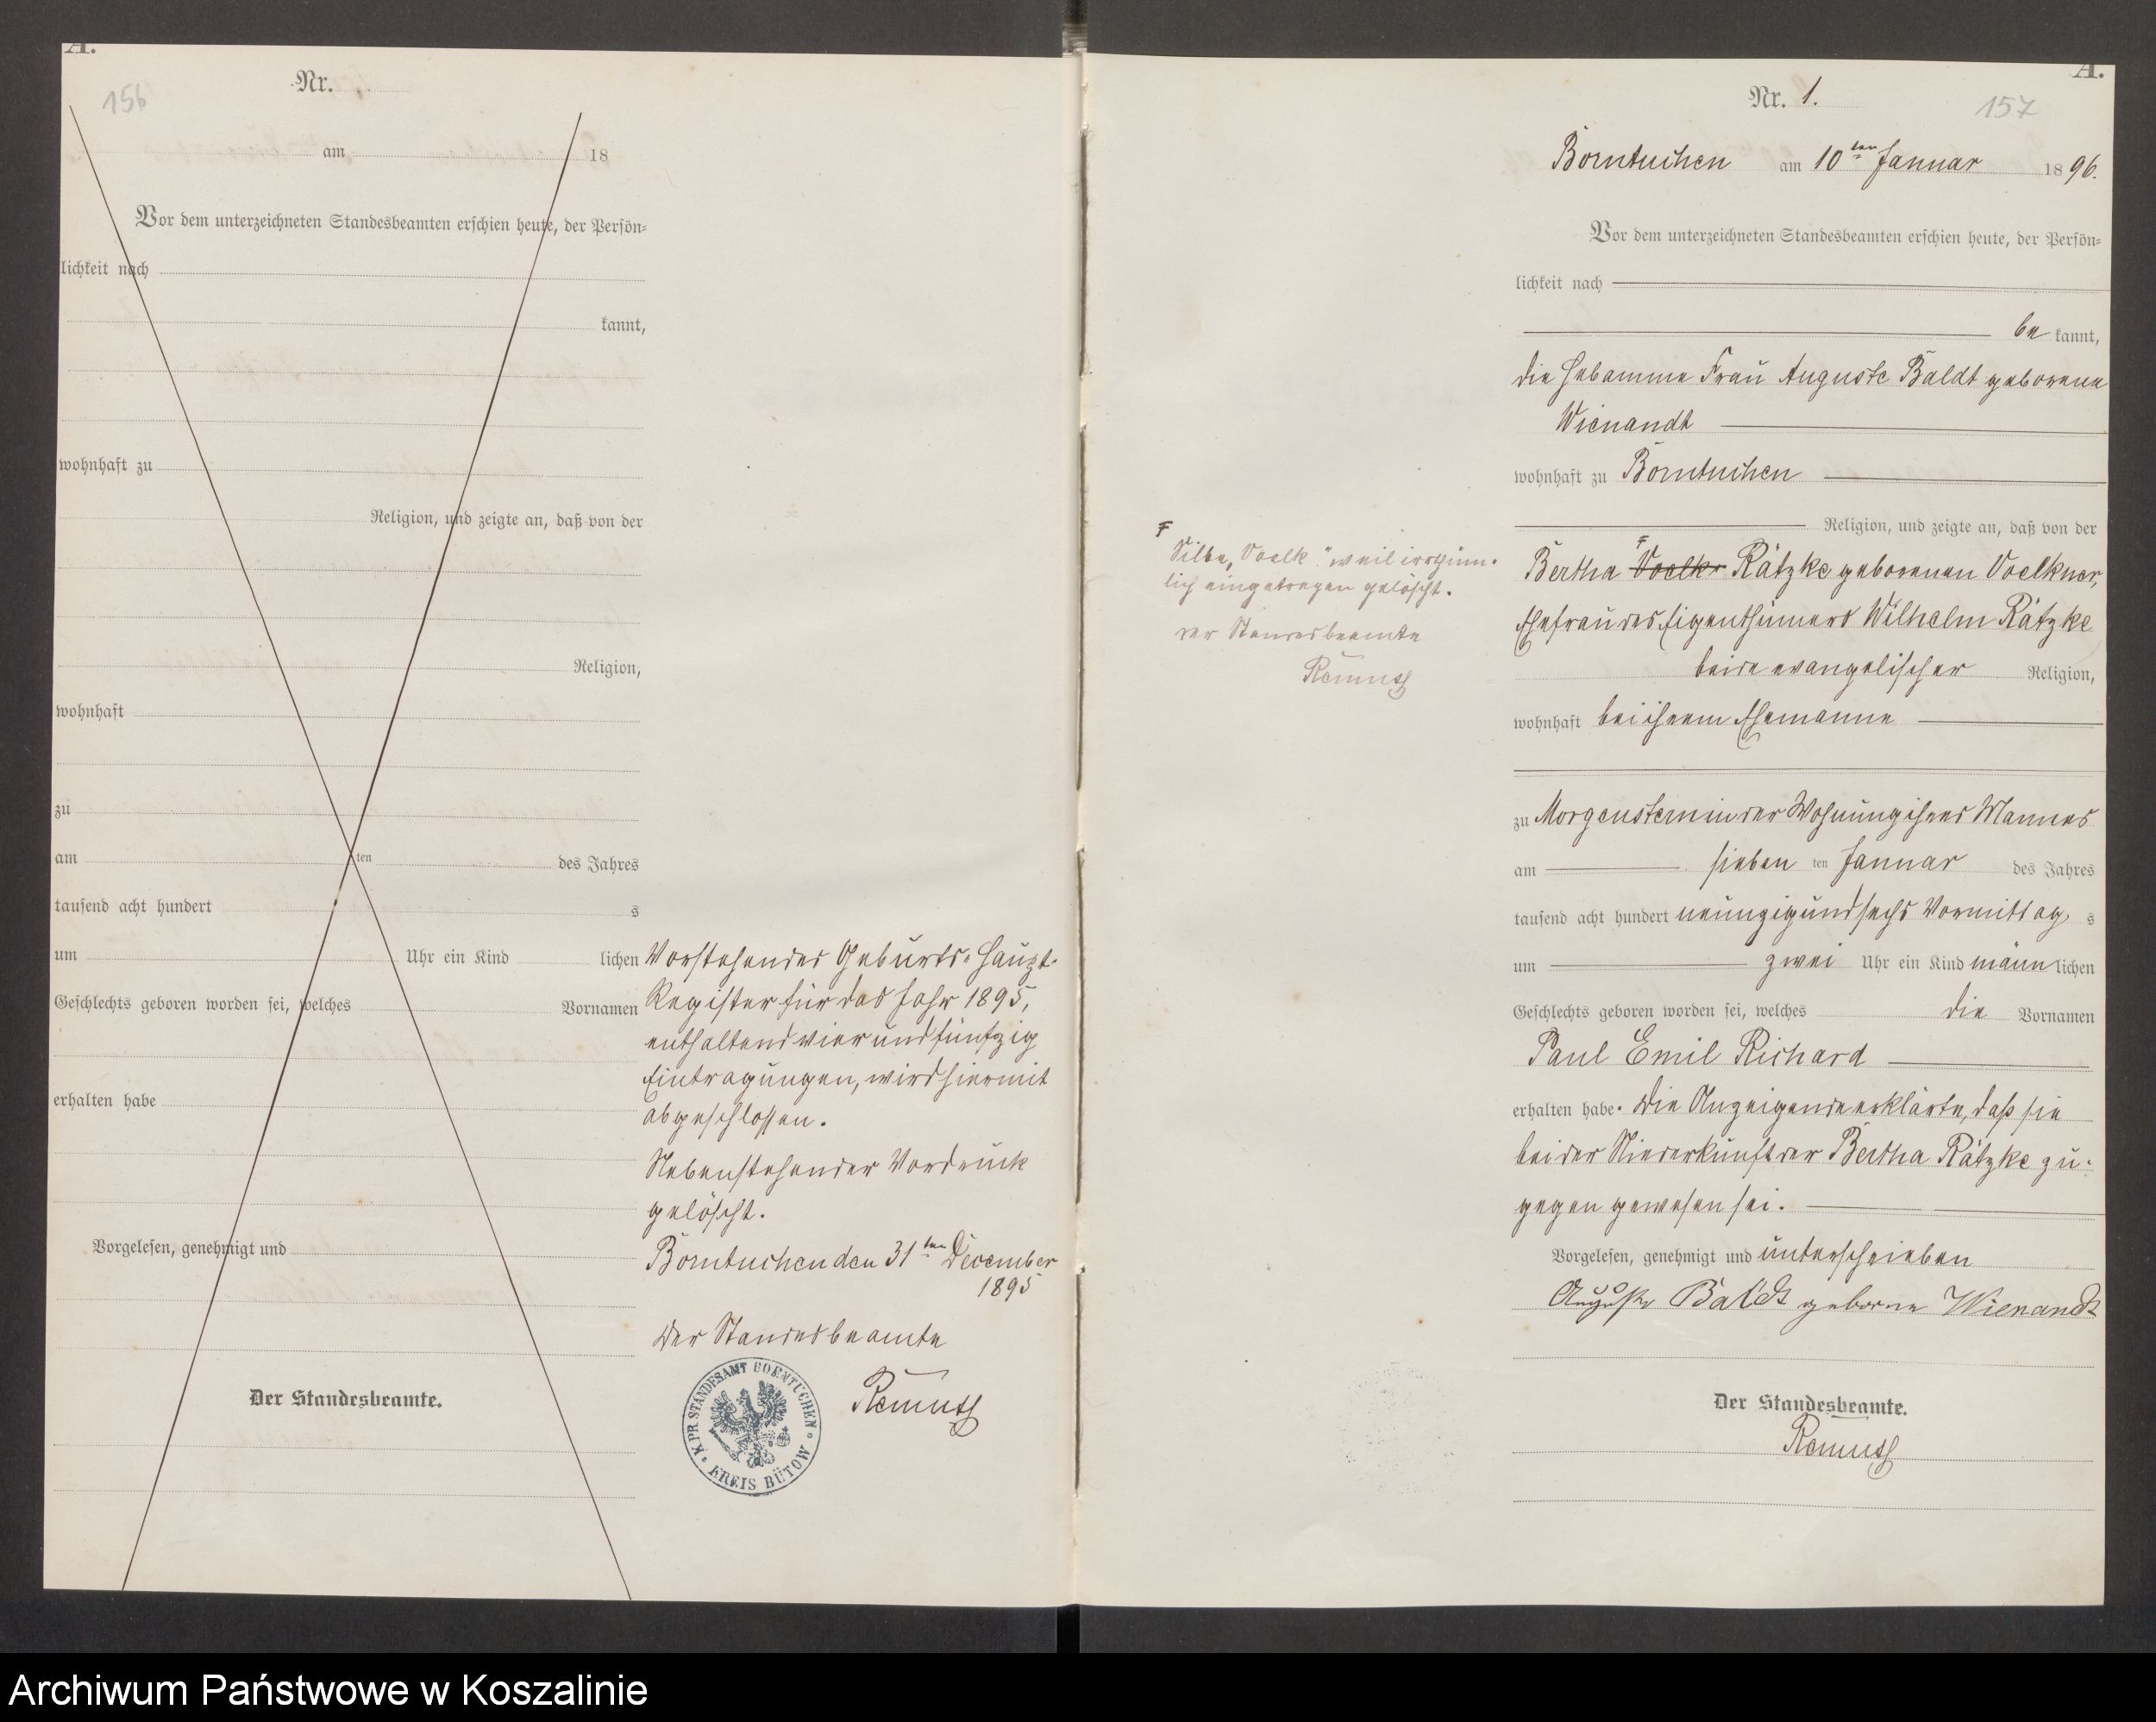 A.
Nr.
156
am 18
Vor dem unterzeichneten Standesbeamten erschien heute, der Persön-
lichkeit nach
kannt,
wohnhaft zu
Religion, und zeigte an, daß von der
Religion,
wohnhaft
zu
am ten des Jahres
tausend acht hundert s
um Uhr ein Kind lichen
Geschlechts geboren worden sei, welches Vornamen
erhalten habe
Vorgelesen, genehmigt und
Der Standesbeamte.
Vorstehendes Geburts-Haupt-
Register für das Jahr 1895,
enthaltend vier und fünfzig
Eintragungen, wird hiermit
abgeschlossen.
Nebenstehender Vordruck
gelöscht.
Borntuchen den 31ten December
1895
Der Standesbeamte
Remus
K. PR. STANDESAMT BORNTUCHEN
KREIS BÜTOW
A.
Nr. 1.
157
Borntuchen am 10ten Januar 1896.
Vor dem unterzeichneten Standesbeamten erschien heute, der Persön-
lichkeit nach
be kannt,
die Hebamme Frau Auguste Baldt geborene
Wienandt
wohnhaft zu Borntuchen
Religion, und zeigte an, daß von der
Bertha Voelk Rätzke geborenen Voelkner,
Ehefrau des Eigenthümers Wilhelm Rätzke
beide evangelischer Religion,
wohnhaft bei ihrem Ehemanne
zu Morgenstern in der Wohnung ihres Mannes
am sieben ten Januar des Jahres
tausend acht hundert neunzig und sechs Vormittag s
um zwei Uhr ein Kind männ lichen
Geschlechts geboren worden sei, welches die Vornamen
Paul Emil Richard
erhalten habe. Die Anzeigende erklärte, daß sie
bei der Niederkunft der Bertha Rätzke zu-
gegen gewesen sei.
Vorgelesen, genehmigt und unterschrieben
Auguste Baldt geborne Wienandt
Der Standesbeamte.
Remus
Silbe "Voelk" weil irrthüm-
lich eingetragen gelöscht.
der Standesbeamte
Remus
Archiwum Państwowe w Koszalinie